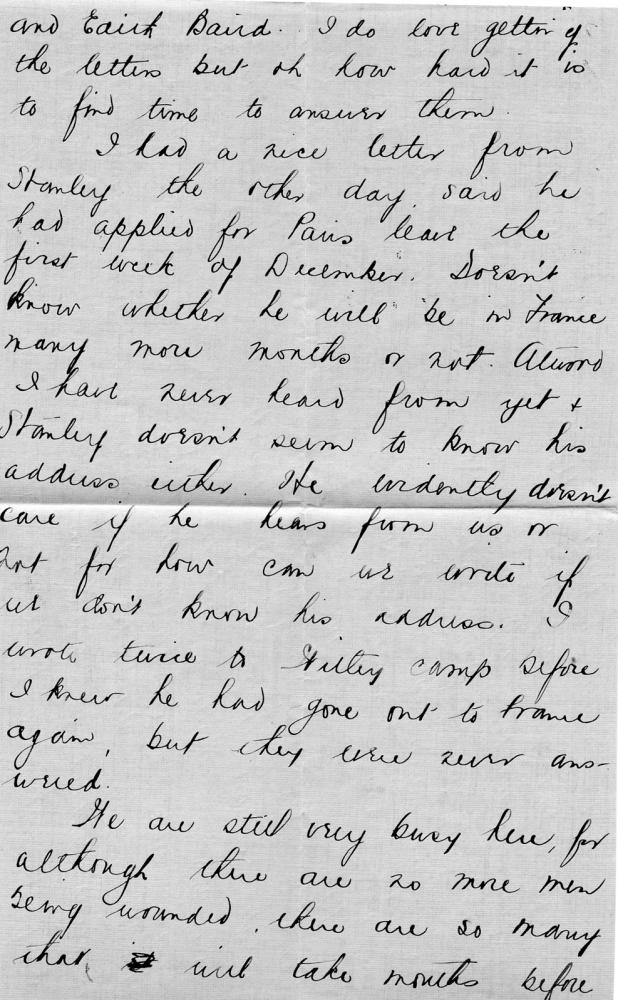 and Edith Baird. I do love getting
the letters but oh how hard it is
to find time to answer them.
I had a nice letter from
Stanley the other day, said he
had applied for Paris leave the
first week of December. Doesn't
know whether he will be in France
many more months or not. Atword
I have never heard from yet +
Stanley doesn't seem to know his
address either. He evidently doesn't
care if he hears from us or
not for how can we write if
we don't know his address. I
wrote twice to Witley camp before
I knew he had gone out to France
again, but they were never ans-
wered.
We are still very busy here, for
although there are no more men
being wounded, there are so many
that it will take months before